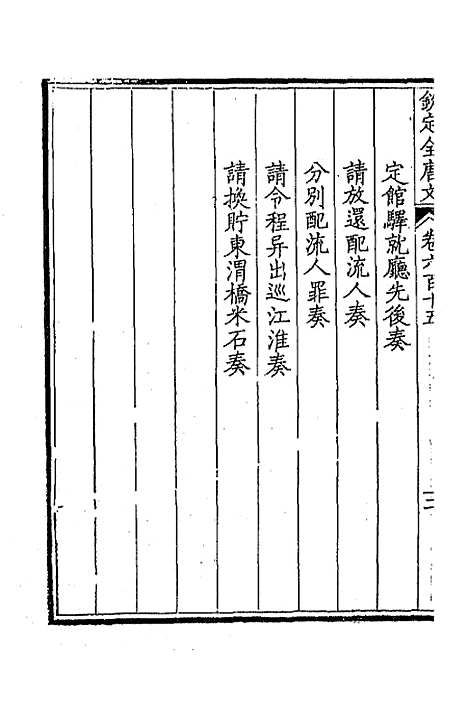 欽定全唐文 卷六百十五 二
定館驛就廳先後奏
請放還配流人奏
分別配流人罪奏
請令程异出巡江淮奏
請換貯東渭橋米石奏